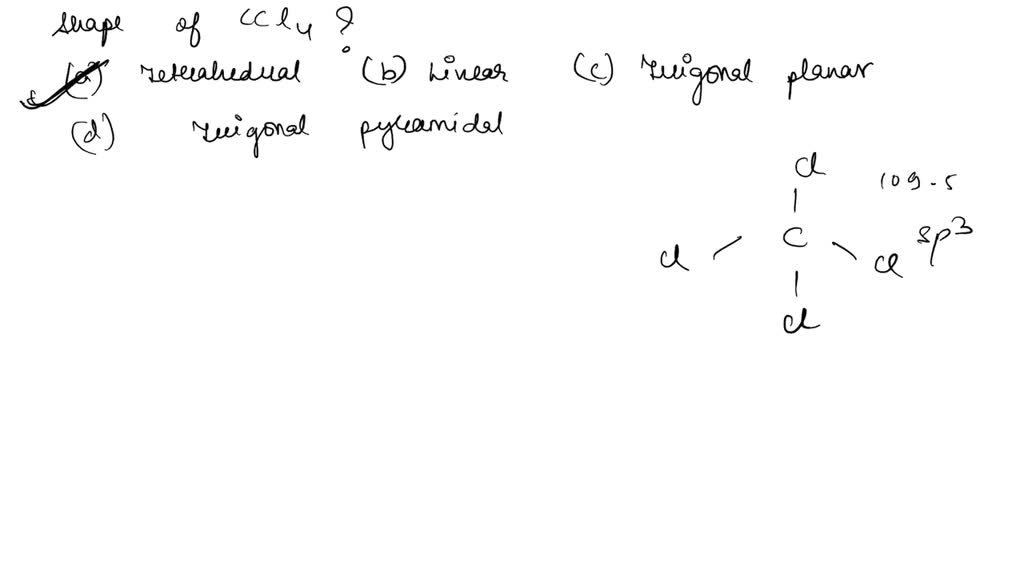 shape of CCl4 ?
(a) tetrahedral (b) Linear (c) Trigonal planar
(d) Trigonal pyramidal
Cl
109.5
C
sp3
Cl
Cl
Cl